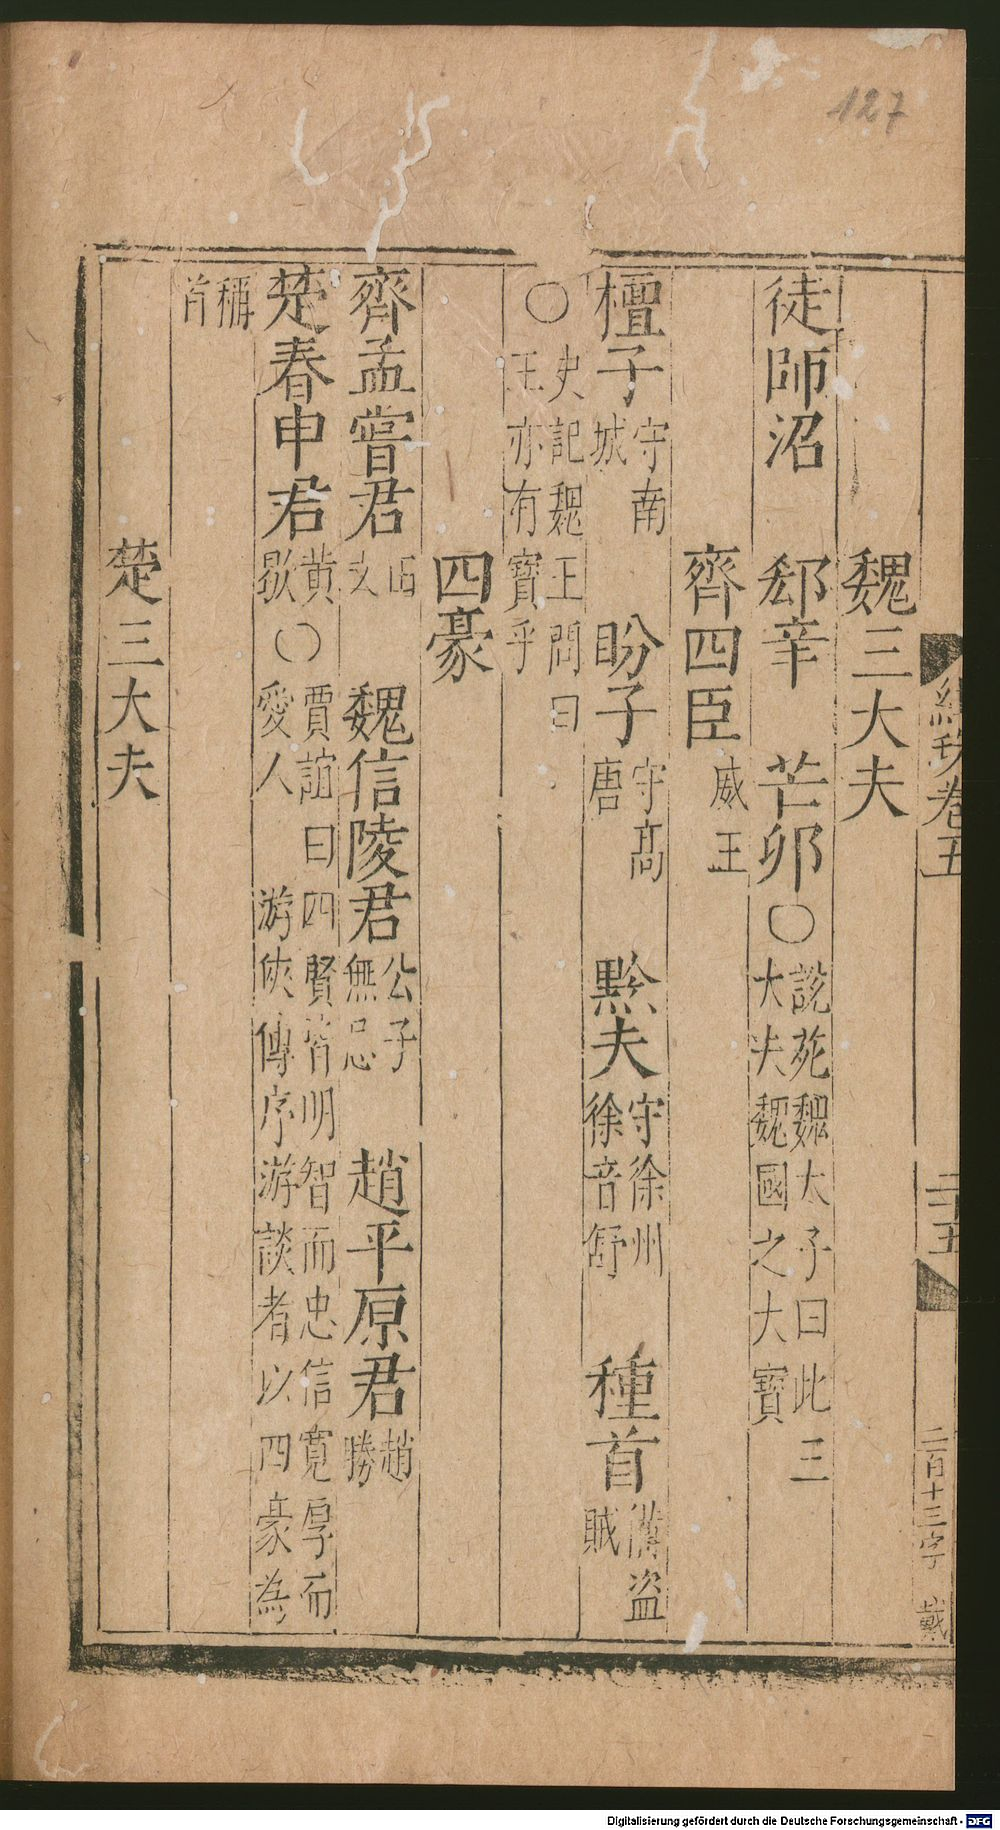 127
紺珠卷五
二十五
二百十三字 戴
魏三大夫
徒師沼 郄辛 芒卯〇說苑魏太子曰此三大夫魏國之大寶
齊四臣威王
檀子守南城 盼子守高唐 黙夫守徐州徐音舒 種首備盗賊
〇史記魏王問曰王亦有寶乎
四豪
齊孟嘗君田文 魏信陵君公子無忌 趙平原君趙勝
楚春申君黄歇〇賈誼曰四賢皆明智而忠信寛厚而愛人 游俠傳序游談者以四豪為
稱首
楚三大夫
Digitalisierung gefördert durch die Deutsche Forschungsgemeinschaft - DFG